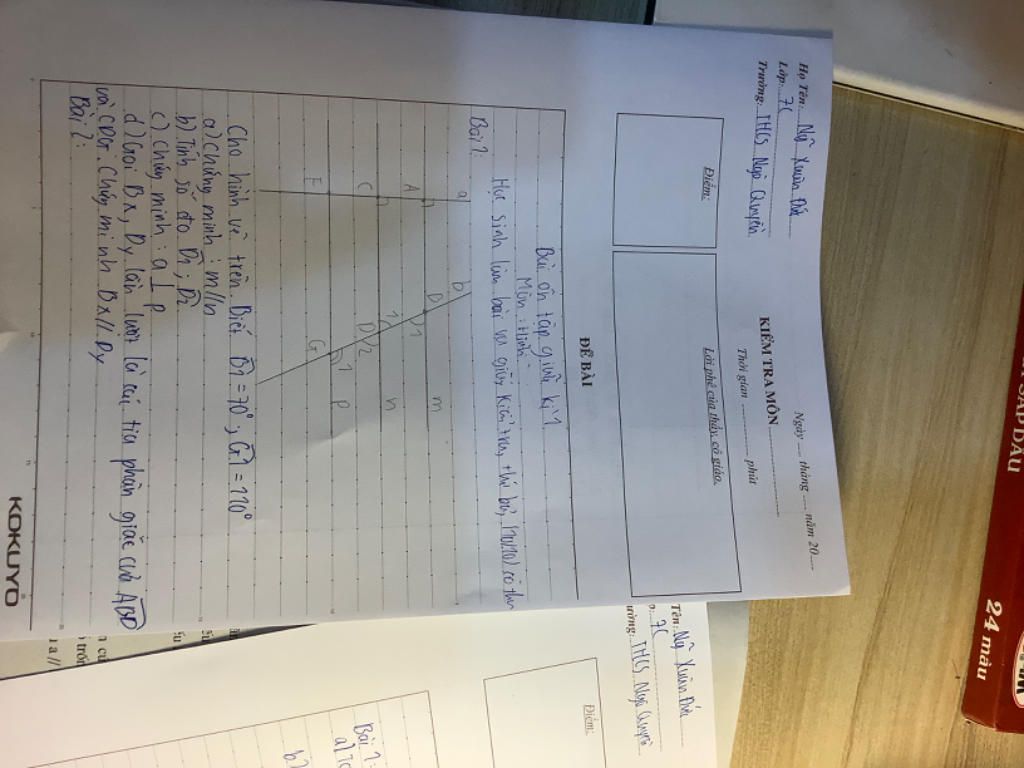 Ngày ..... tháng ..... năm 20.....
Họ Tên: Ngũ Xuân Đức
Lớp: 7C
Trường: THCS Ngô Quyền
KIỂM TRA MÔN
Thời gian ............ phút
Điểm:
Lời phê của thầy, cô giáo.
ĐỀ BÀI
Bài ôn tập giữa kì 1
Môn: Hình
Học sinh làm bài vào giấy kiểm tra, thứ bảy (10/10) cô thu
Bài 1:
a
b
A
B
1
m
C
1
D
2
n
E
G
1
p
Cho hình vẽ trên. Biết B1 = 70°; G1 = 110°
a) Chứng minh: m//n
b) Tính số đo D1; D2
c) Chứng minh: a ⊥ p
d) Gọi Bx, Dy lần lượt là các tia phân giác của ABD
và CDG. Chứng minh Bx // Dy
Bài 2:
KOKUYO
Tên: Ngũ Xuân Đức
7C
rường: THCS Ngô Quyền
Điểm:
Bài 1:
b)
SÁP DẦU
24 màu